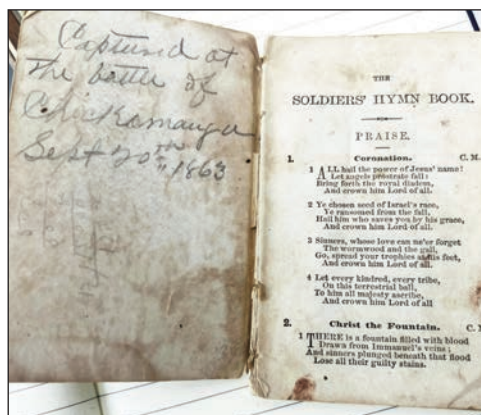 Captured at
the battle of
Chickamauga
Sept 20th 1863
THE
SOLDIERS' HYMN BOOK.
PRAISE.
1. Coronation. C. M.
1 ALL hail the power of Jesus' name!
Let angels prostrate fall:
Bring forth the royal diadem,
And crown him Lord of all.
2 Ye chosen seed of Israel's race,
Ye ransomed from the fall,
Hail him who saves you by his grace,
And crown him Lord of all.
3 Sinners, whose love can ne'er forget
The wormwood and the gall,
Go, spread your trophies at his feet,
And crown him Lord of all.
4 Let every kindred, every tribe,
On this terrestrial ball,
To him all majesty ascribe,
And crown him Lord of all
2. Christ the Fountain. C.
1 THERE is a fountain filled with blood
Drawn from Immanuel's veins;
And sinners plunged beneath that flood
Lose all their guilty stains.